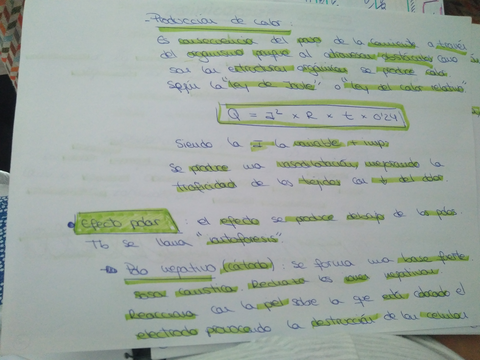 -Producción de calor:
Es consecuencia del paso de la corriente a través
del organismo porque al atravesar sustancias como
son las estructuras orgánicas se produce calor
según la "Ley de Joule" o "Ley del calor relativo"
Q = I² x R x t x 0'24
Siendo la I la variable + imp.
Se produce una mejorando la
troficidad de los tejidos, con ↓ del dolor
Efecto polar: el efecto se produce debajo de los polos.
Tb se llama "iontoforesis"
Polo negativo (cátodo): se forma una base fuerte
sosa caustica. Rechaza los iones negativos
Reacciona con la piel sobre la que está colocado el
electrodo provocando la destrucción de las células